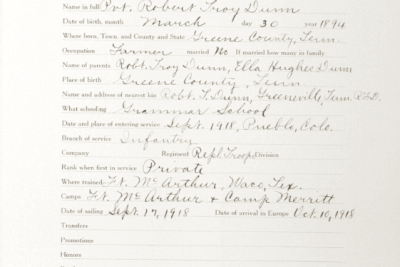 Name in full Pvt. Robert Troy Dunn
Date of birth, month March day 30 year 1894
Where born, Town, and County and State Greene County, Tenn.
Occupation Farmer married No If married how many in family
Name of parents Robt. Troy Dunn, Ella Hughes Dunn
Place of birth Greene County, Tenn
Name and address of nearest kin Robt. T. Dunn, Greeneville, Tenn R.F.D.
What schooling Grammar School
Date and place of entering service Sept. 1918, Pueblo, Colo.
Branch of service Infantry
Company Regiment Repl. Troops Division
Rank when first in service Private
Where trained Ft. McArthur, Waco, Tex.
Camps Ft. McArthur & Camp Merritt
Date of sailing Sept. 17, 1918 Date of arrival in Europe Oct. 10, 1918
Transfers
Promotions
Honors